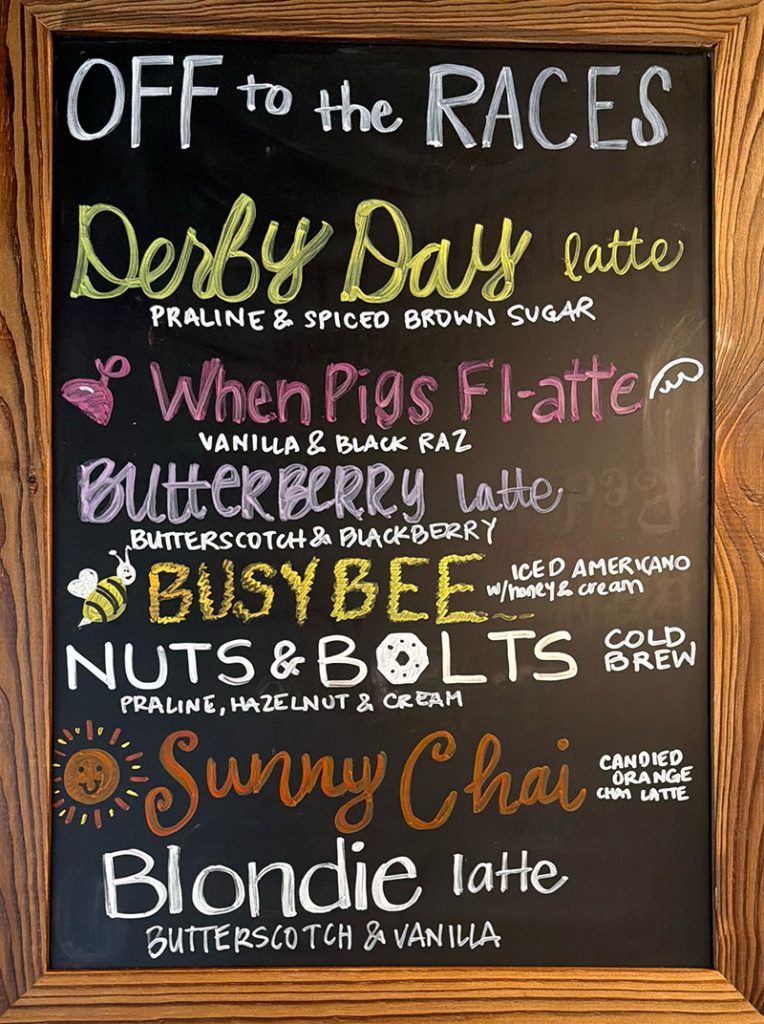 OFF to the RACES
Derby Day latte
PRALINE & SPICED BROWN SUGAR
When Pigs Fl-atte
VANILLA & BLACK RAZ
BUTTERBERRY latte
BUTTERSCOTCH & BLACKBERRY
BUSY BEE
ICED AMERICANO
w/honey & cream
NUTS & BOLTS
COLD
BREW
PRALINE, HAZELNUT & CREAM
Sunny Chai
CANDIED
ORANGE
CHAI LATTE
Blondie latte
BUTTERSCOTCH & VANILLA